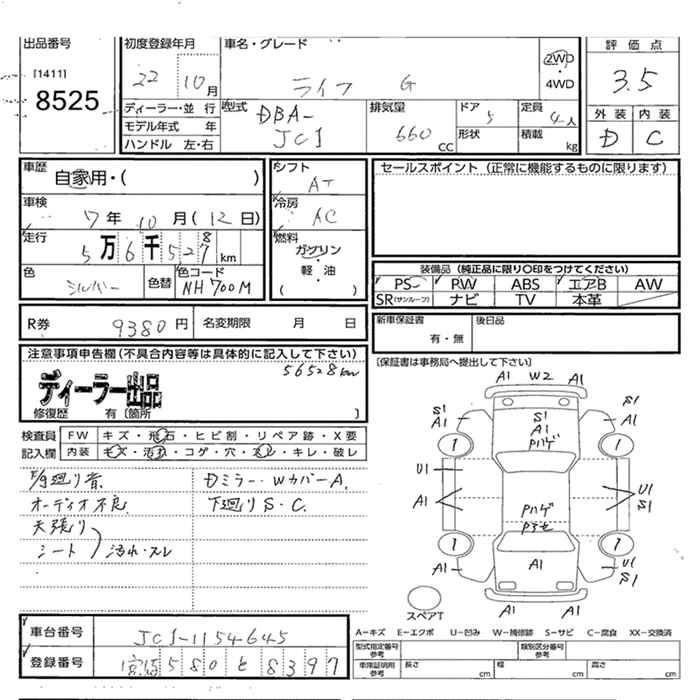 出品番号
[1411]
8525
初度登録年月
22 10月
車名・グレード
ライフ G
2WD
4WD
評価点
3.5
外装 内装
D C
ディーラー・並行
モデル年式 年
ハンドル 左・右
型式
DBA-
JC1
排気量
660 cc
ドア
5
形状
定員
4人
積載 kg
車歴
自家用・( )
車検
7年 10月 (12日)
走行
5万6千528km
色
シルバー
色替
色コード
NH700M
シフト
AT
冷房
AC
燃料
ガソリン
軽・油
( )
セールスポイント (正常に機能するものに限ります)
装備品 (純正品に限り○印をつけてください)
PS PW ABS エアB AW
SR(サンルーフ) ナビ TV 本革
R券 9380円 名変期限 月 日
新車保証書
有・無
後日品
[保証書は事務局へ提出して下さい]
注意事項申告欄(不具合内容等は具体的に記入して下さい)
56528km
ディーラー出品
修復歴 有 [箇所 ]
検査員
記入欄
FW キズ・飛石・ヒビ割・リペア跡・X要
内装 キズ・汚れ・コゲ・穴・スレ・キレ・破レ
オーディオ不良
天張り
シート
汚れ・スレ
Dミラー・WカバーA.
下廻りS・C.
A1 W2 A1
S1
A1
S1
A1
Pハゲ
S1
A1
1
1
U1
A1
Pハゲ
U1
S1
1
1
A1
A1
U1
S1
A1 A1
スペアT
車台番号 JC1-1154645
登録番号 580と8397
A-キズ E-エクボ U-凹み W-補修跡 S-サビ C-腐食 XX-交換済
型式指定番号
参考
類別区分番号
参考
車庫証明用
参考
長さ cm
幅 cm
高さ cm